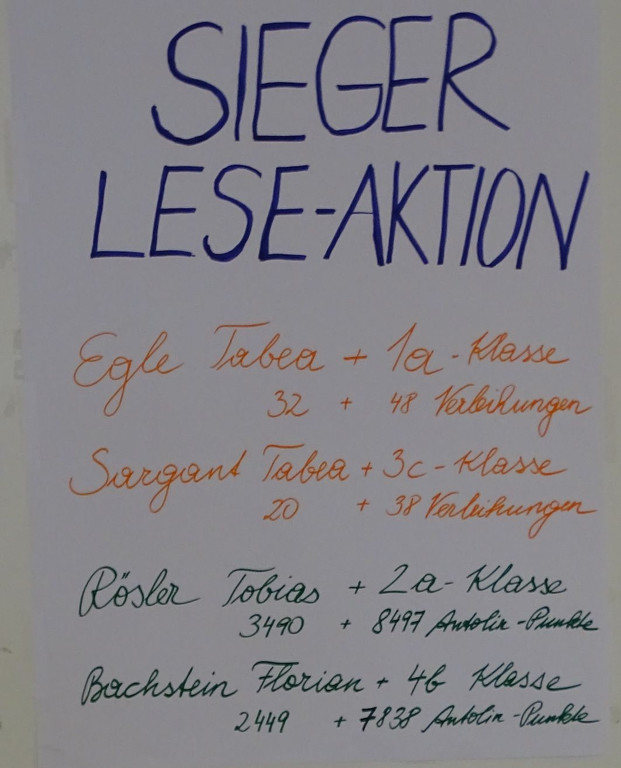 SIEGER
LESE-AKTION
Egle Tabea + 1a-Klasse
32 + 48 Verleihungen
Sargant Tabea + 3c-Klasse
20 + 38 Verleihungen
Rösler Tobias + 2a-Klasse
3490 + 8497 Antolin-Punkte
Bachstein Florian + 4b Klasse
2449 + 7838 Antolin-Punkte